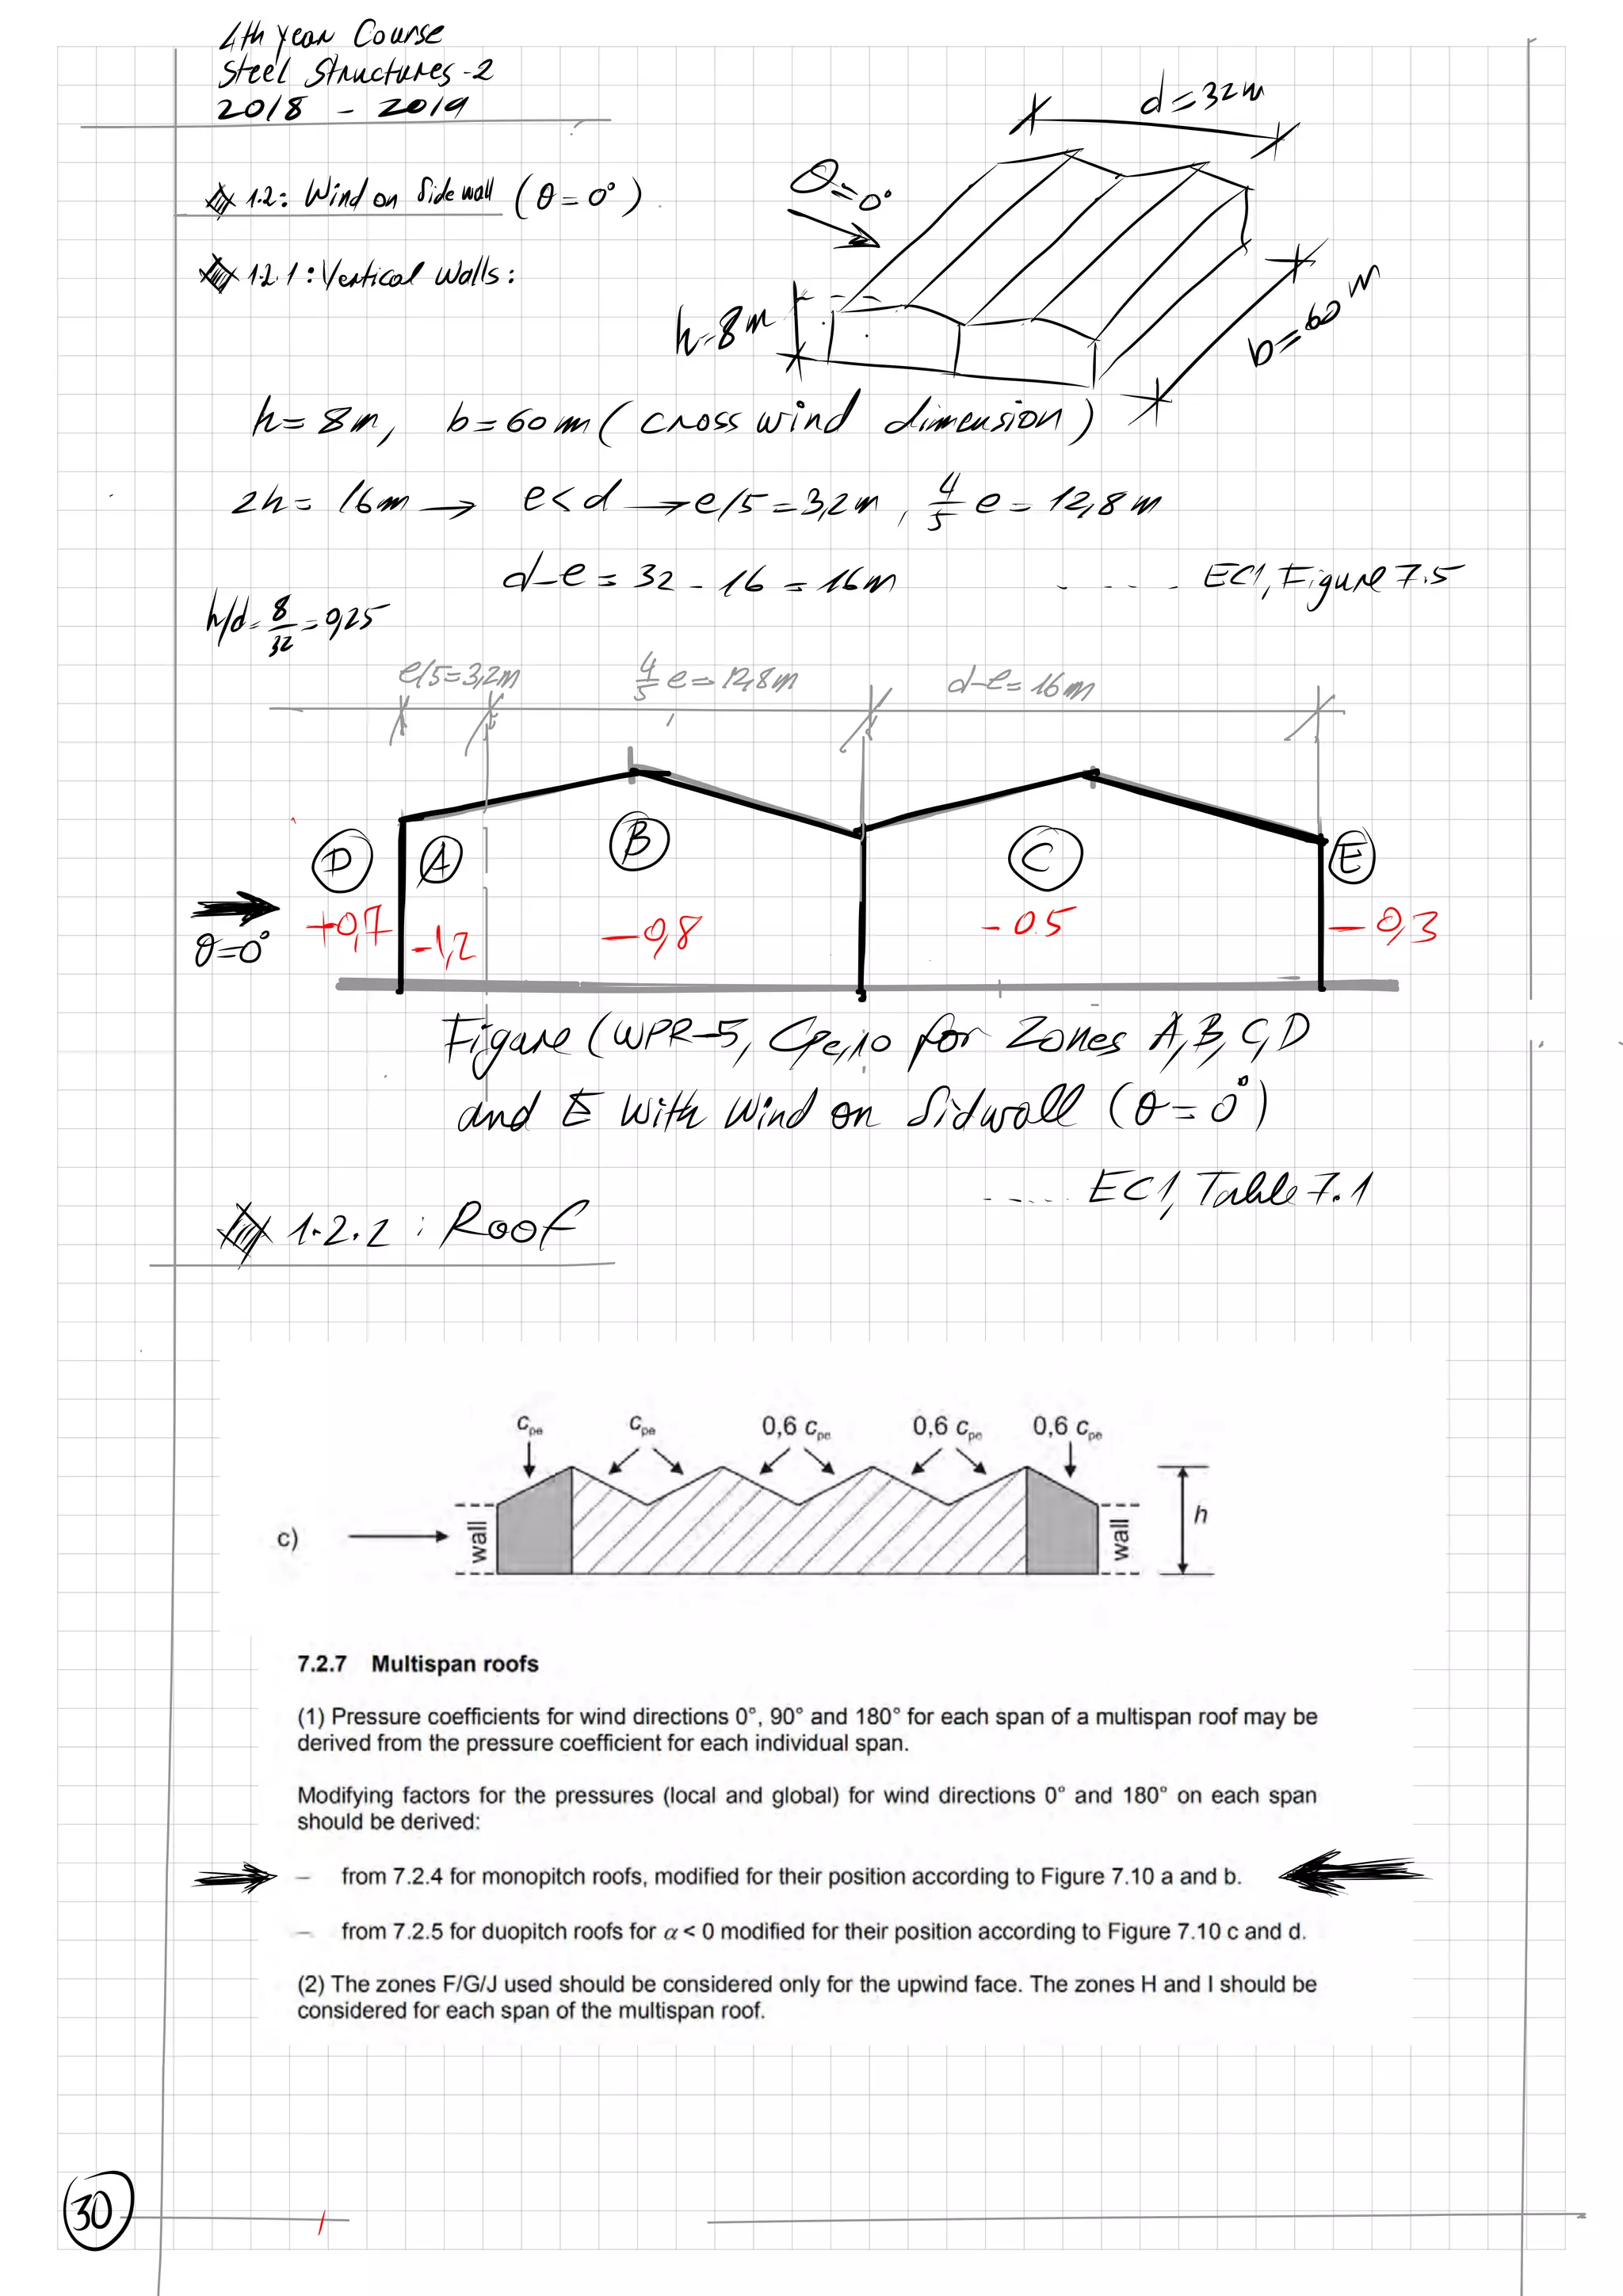 4th year Course
Steel Structures-2
2018 - 2019
d=32m
θ=0°
1.2: Wind on Side wall (θ=0°)
1.2.1: Vertical walls:
h=8m
b=60m
h=8m, b=60m (cross wind dimension)
2h= 16m → e<d → e/5=3,2m, 4/5 e= 12,8m
d-e= 32-16=16m ..... EC1, Figure 7.5
h/d= 8/32=0,25
e/5=3,2m 4/5 e=12,8m d-e=16m
D A B C E
+0,7 -1,2 -0,8 -0.5 -0,3
θ=0°
Figure (WPR-5, Cpe,10 for Zones A,B,C,D
and E With Wind on Sidwall (θ=0°)
..... EC1, Table 7.1
1.2.2: Roof
cpe cpe 0,6 cpe 0,6 cpe 0,6 cpe
c) wall wall h
7.2.7 Multispan roofs
(1) Pressure coefficients for wind directions 0°, 90° and 180° for each span of a multispan roof may be
derived from the pressure coefficient for each individual span.
Modifying factors for the pressures (local and global) for wind directions 0° and 180° on each span
should be derived:
– from 7.2.4 for monopitch roofs, modified for their position according to Figure 7.10 a and b.
– from 7.2.5 for duopitch roofs for α < 0 modified for their position according to Figure 7.10 c and d.
(2) The zones F/G/J used should be considered only for the upwind face. The zones H and I should be
considered for each span of the multispan roof.
30